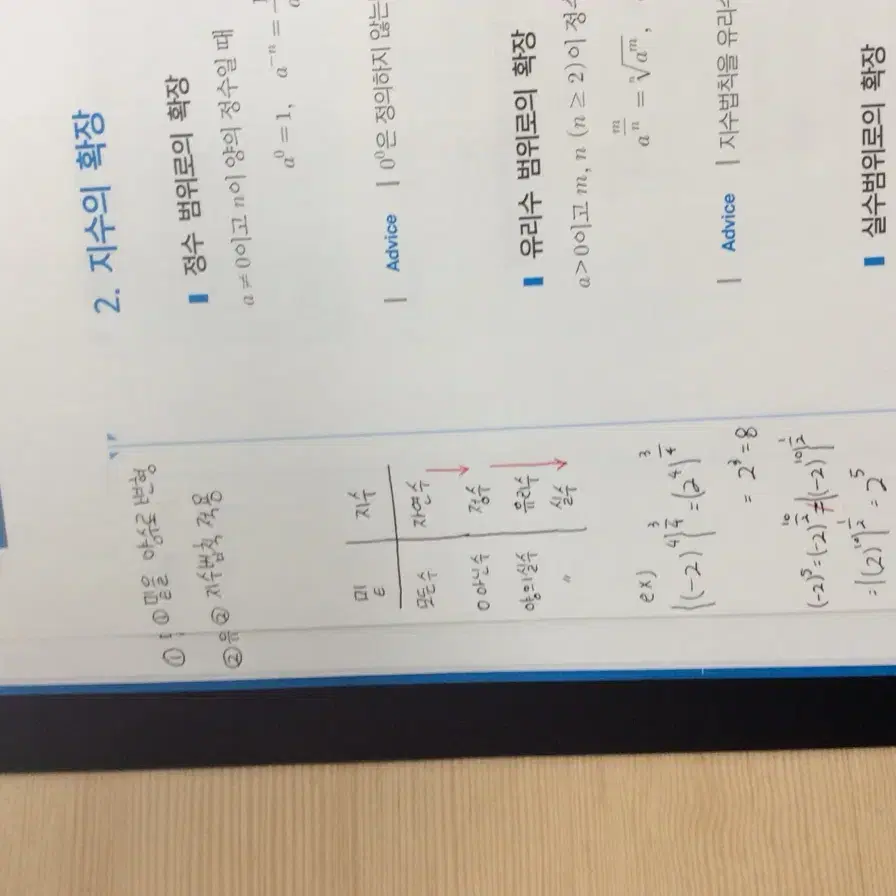 2. 지수의 확장
정수 범위로의 확장
a≠0이고 n이 양의 정수일 때
a⁰=1, a⁻ⁿ=
| Advice | 0⁰은 정의하지 않는
유리수 범위로의 확장
a>0이고 m, n (n≥2)이 정
a^(m/n) = ⁿ√(aᵐ),
| Advice | 지수법칙을 유리
실수범위로의 확장
① 밑을 양수로 변형
② 지수법칙 적용
밑 지수
모든수 자연수
0 아닌수 정수
양의실수 유리수
〃 실수
ex)
{(-2)⁴}^(3/4) = (2⁴)^(3/4)
= 2³ = 8
(-2)⁵ = (-2)^(10/2) ≠ {(-2)¹⁰}^(1/2)
= {(2)¹⁰}^(1/2) = 2⁵